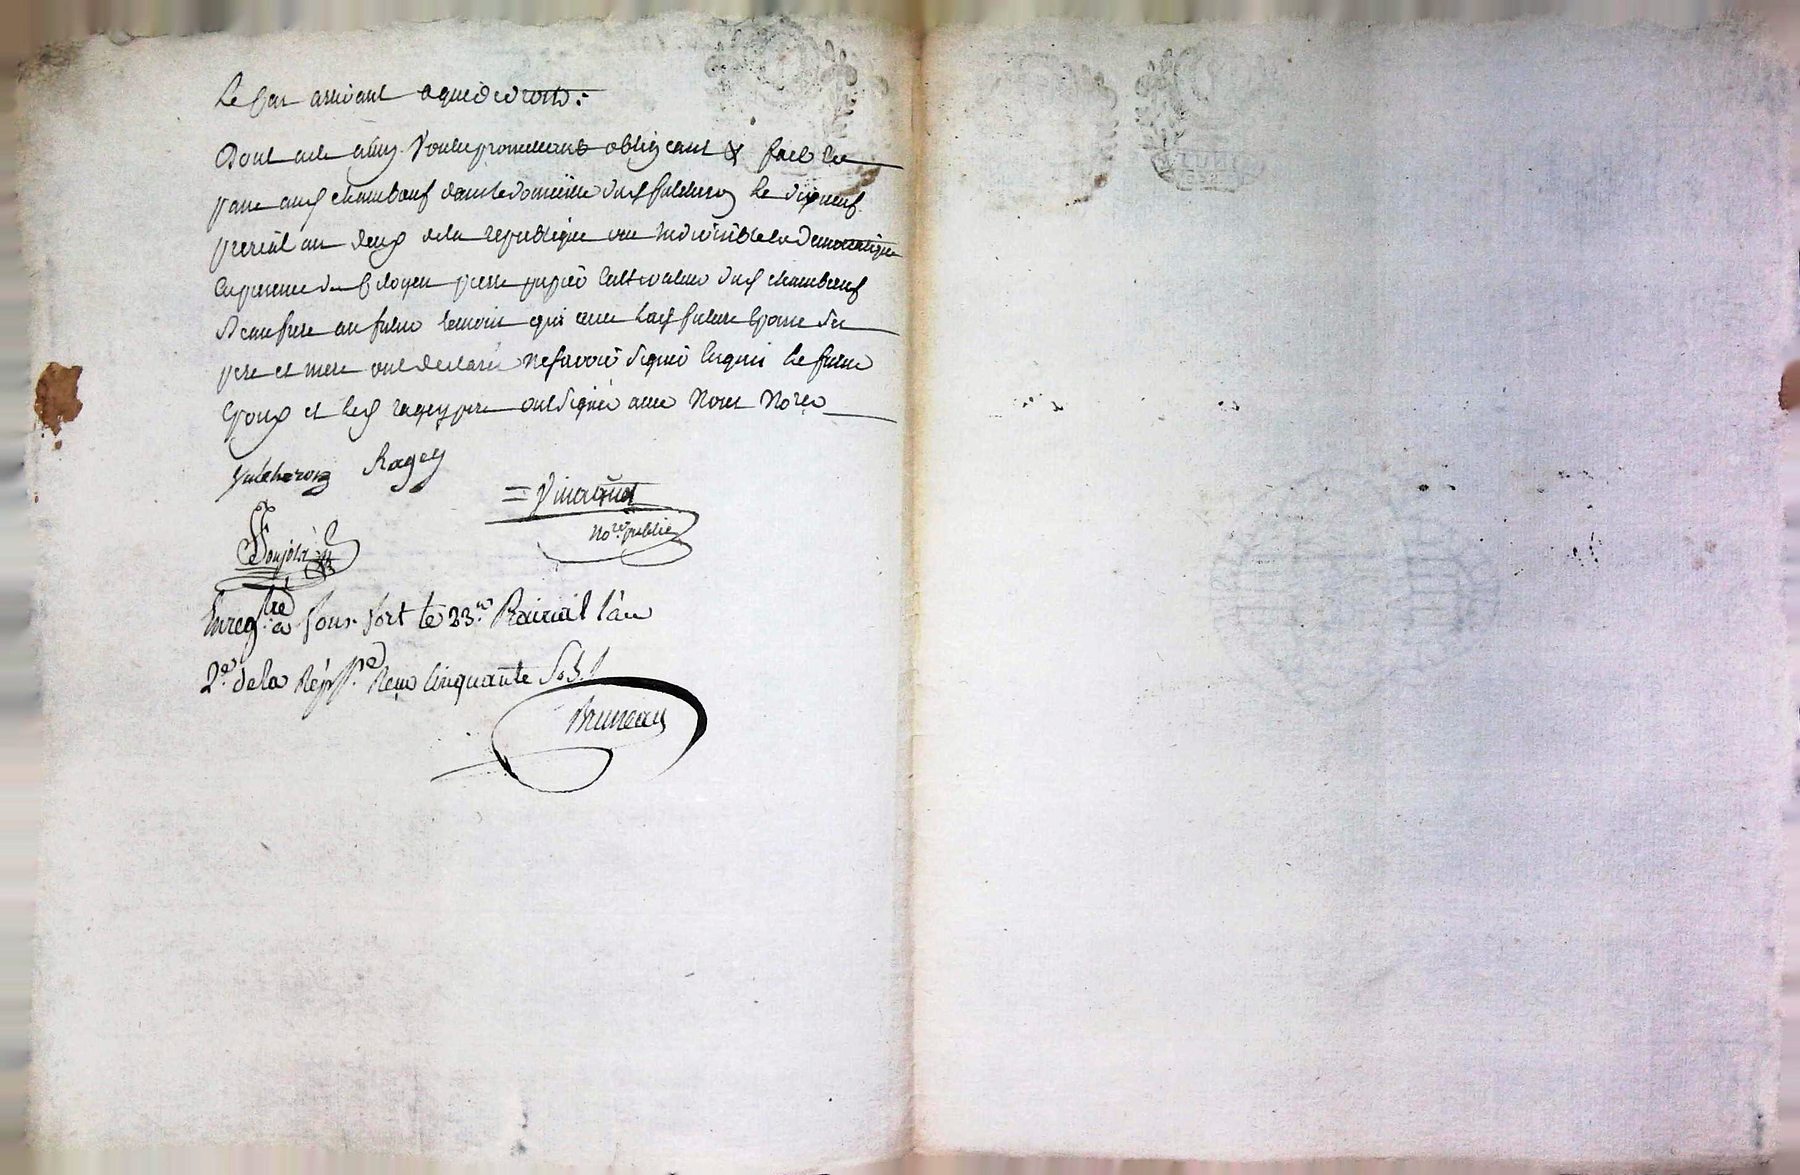 Le Cas arrivant a qui de droit :
Dont acte ainsy voulu promettant obligeant & fait et
passé aud chambœuf dans le domicille dud futeur le dix neuf
prerial an deux de la republique une Indivisible et Democratique
En presence du Citoyen pierre cultivateur dud chambœuf
Beaufrere au futur temoin qui avec lad future Epouse Ses
pere et mere ont declaré ne scavoir signer Enquis Le futur
Epoux et led ragey pere ont signés avec Nous No.re
Ragey
Vinagnet
No.re public
Enreg.tré a fons-fort le 23.e Prairial l'an
2.e de la Rép. Reçu Cinquante Sols
Bruneau